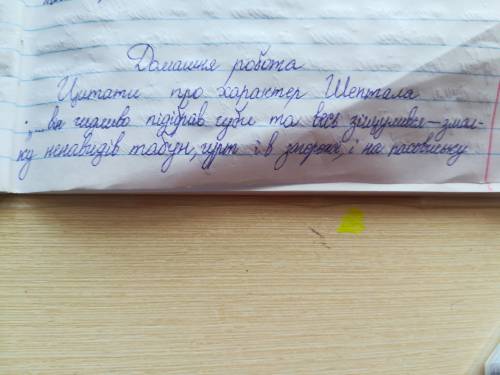 Домашня робота
Цитати про характер Шептала
"...він гидливо підібрав губи та весь зіщулився – змал-
ку ненавидів табун, гурт і в загорожі, і на пасовиську